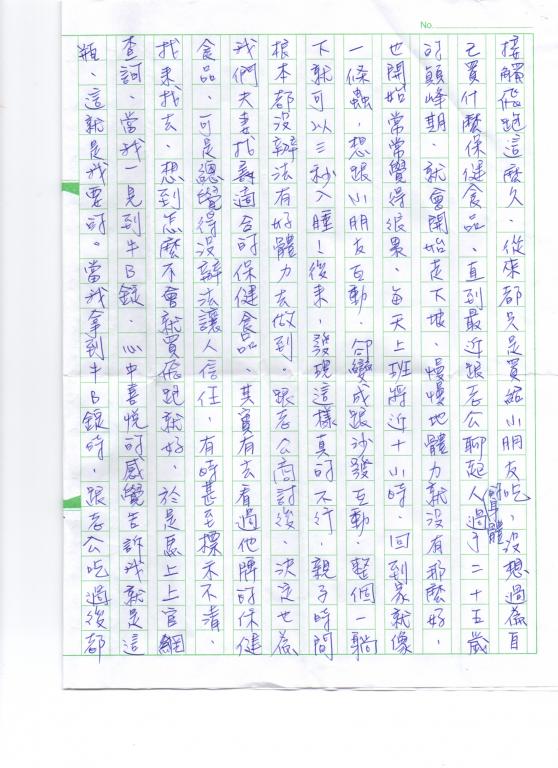 No.
接觸飛跑這麼久、從來都只是買給小朋友吃、沒想過為自
己買什麼保健食品、直到最近跟老公聊起人過了二十五歲
身體
的顛峰期、就會開始走下坡、慢慢地體力就沒有那麼好、
也開始常常覺得很累、每天上班將近十小時、回到家就像
一條蟲、想跟小朋友互動、卻變成跟沙發互動、整個一躺
下就可以三秒入睡!後來、發現這樣真的不行、親子時間
根本都沒辦法有好體力去做到、跟老公商討後、決定也為
我們夫妻找尋適合的保健食品、其實有去看過他牌的保健
食品、可是總覺得沒辦法讓人信任、有時甚至標示不清、
找來找去、想到怎麼不會就買飛跑就好、於是馬上上官網
查詢、當我一見到牛B錠、心中喜悅的感覺告訴我就是這
瓶、這就是我要的。當我拿到牛B錠時、跟老公吃過後都